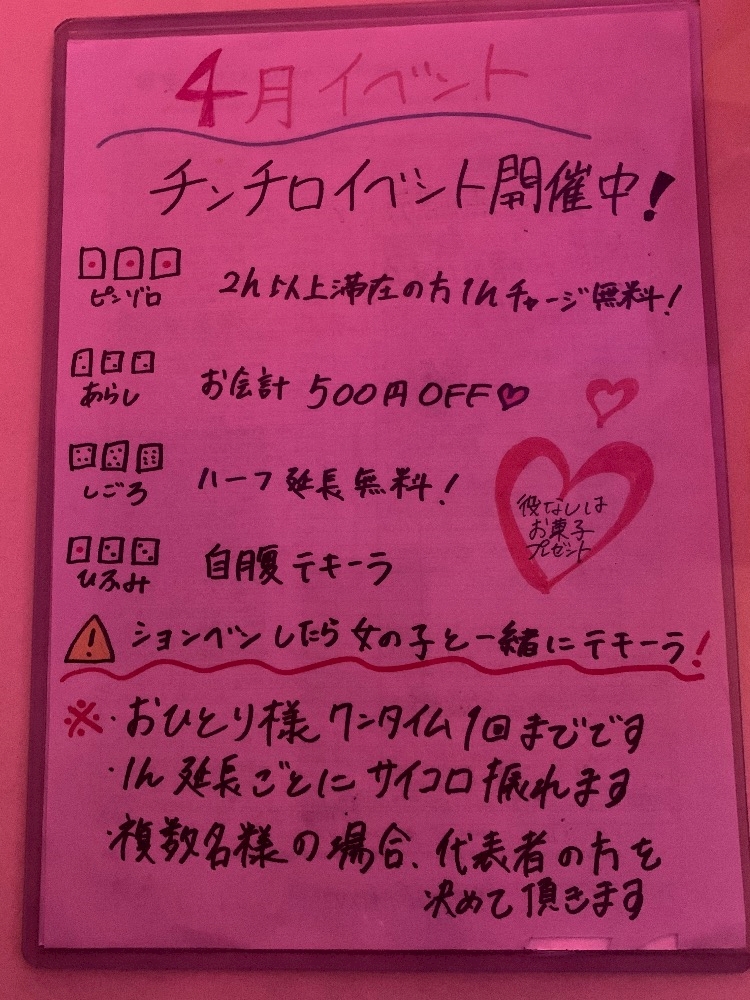 4月イベント
チンチロイベント開催中!
ピンゾロ
2h以上滞在の方1hチャージ無料!
あらし
お会計 500円OFF♥
しごろ
ハーフ延長無料!
役なしは
お菓子
プレゼント
ひふみ
自腹テキーラ
⚠ションベンしたら女の子と一緒にテキーラ!
※・おひとり様ワンタイム1回までです
・1h延長ごとにサイコロ振れます
・複数名様の場合、代表者の方を
決めて頂きます